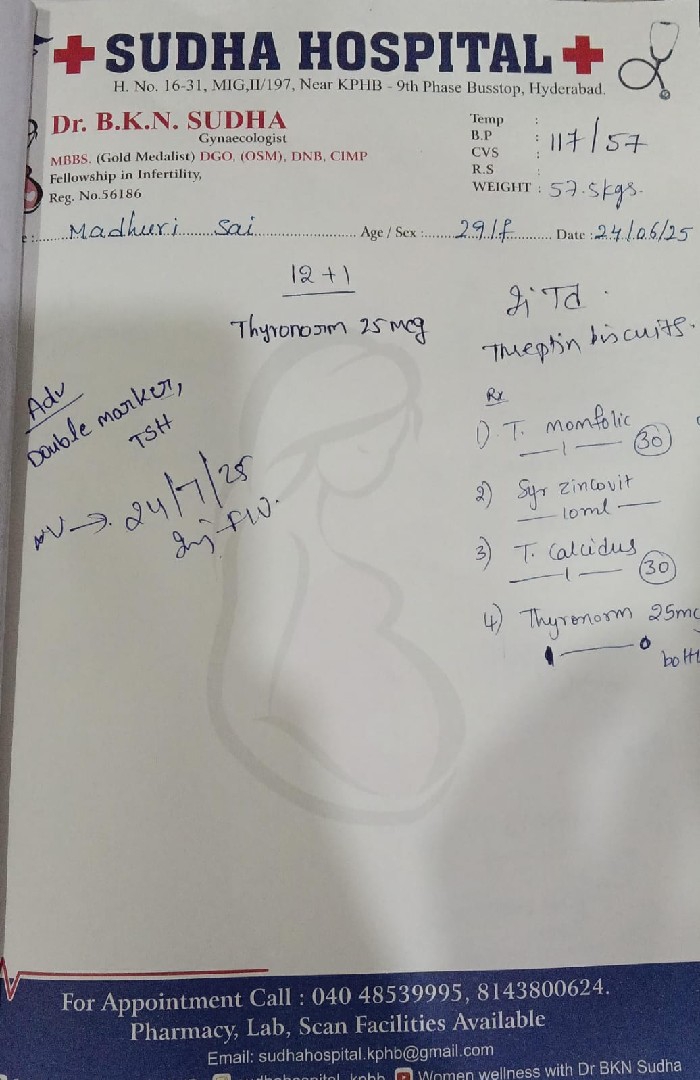 SUDHA HOSPITAL
H. No. 16-31, MIG,II/197, Near KPHB - 9th Phase Busstop, Hyderabad.
Dr. B.K.N. SUDHA
Gynaecologist
MBBS. (Gold Medalist) DGO, (OSM), DNB, CIMP
Fellowship in Infertility,
Reg. No.56186
Temp :
B.P : 117/57
CVS :
R.S :
WEIGHT : 57.5kgs.
Madhuri Sai Age / Sex : 29/f Date : 24/06/25
12+1
Thyronorm 25 mcg
Inj Td.
Threptin biscuits.
Adv
Double marker,
TSH
NV → 24/7/25
Inj
Rx
1) T. momfolic
— 1 — 30
2) Syr zincovit
— 10ml —
3) T. Calcidus
— 1 — 30
4) Thyronorm 25mc
1 — 0
bott
For Appointment Call : 040 48539995, 8143800624.
Pharmacy, Lab, Scan Facilities Available
Email: sudhahospital.kphb@gmail.com
sudhahospital kphb Women wellness with Dr BKN Sudha